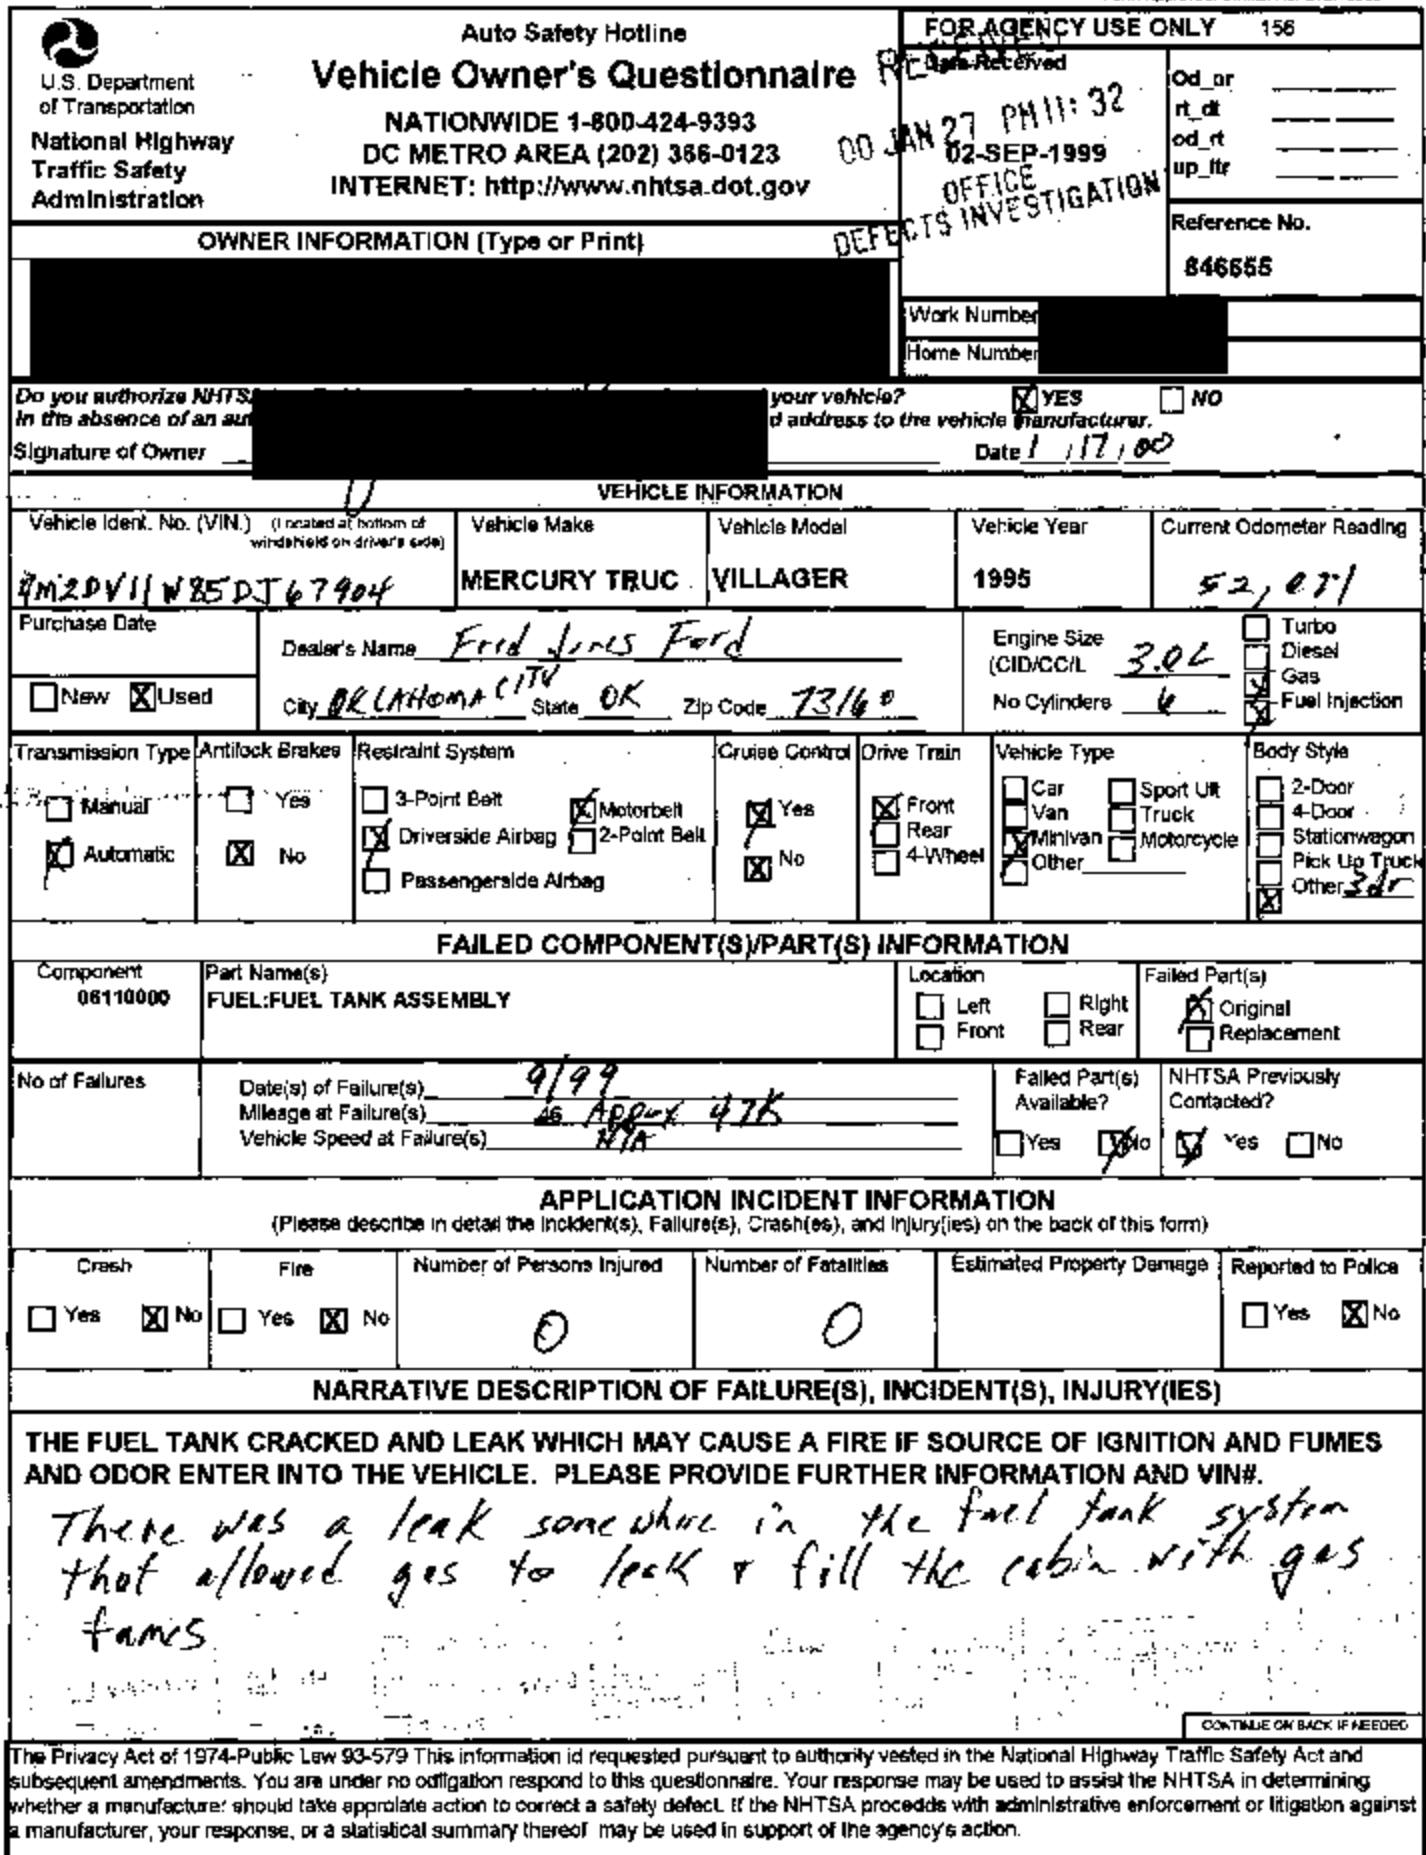 Auto Safety Hotline
Vehicle Owner's Questionnaire
NATIONWIDE 1-800-424-9393
DC METRO AREA (202) 366-0123
INTERNET: http://www.nhtsa.dot.gov
U.S. Department
of Transportation
National Highway
Traffic Safety
Administration
FOR AGENCY USE ONLY 156
Date Received
RECEIVED
00 JAN 27 PM 11:32
02-SEP-1999
OFFICE
DEFECTS INVESTIGATION
Od_or
rt_dt
od_rt
up_ltr
Reference No.
846655
OWNER INFORMATION (Type or Print)
Work Number
Home Number
Do you authorize NHTSA your vehicle? YES NO
In the absence of an address to the vehicle manufacturer.
Signature of Owner Date 1 / 17 / 00
VEHICLE INFORMATION
Vehicle Ident. No. (VIN.) (Located at bottom of windshield on driver's side)
4M2DV11W85DJ67904
Vehicle Make
MERCURY TRUC
Vehicle Model
VILLAGER
Vehicle Year
1995
Current Odometer Reading
Purchase Date
New Used
Dealer's Name Fred Jones Ford
City OKLAHOMA CITY State OK Zip Code 73160
Engine Size
(CID/CC/L 3.0L
No Cylinders 6
Turbo
Diesel
Gas
Fuel Injection
Transmission Type
Manual
Automatic
Antilock Brakes
Yes
No
Restraint System
3-Point Belt
Motorbelt
Driverside Airbag
2-Point Belt
Passengerside Airbag
Cruise Control
Yes
No
Drive Train
Front
Rear
4-Wheel
Vehicle Type
Car
Van
Minivan
Other
Sport Ult
Truck
Motorcycle
Body Style
2-Door
4-Door
Stationwagon
Pick Up Truck
Other 3dr
FAILED COMPONENT(S)/PART(S) INFORMATION
Component
06110000
Part Name(s)
FUEL:FUEL TANK ASSEMBLY
Location
Left Right
Front Rear
Failed Part(s)
Original
Replacement
No of Failures
Date(s) of Failure(s) 9/99
Mileage at Failure(s) 46 Approx 47K
Vehicle Speed at Failure(s) N/A
Failed Part(s)
Available?
Yes No
NHTSA Previously
Contacted?
Yes No
APPLICATION INCIDENT INFORMATION
(Please describe in detail the Incident(s), Failure(s), Crash(es), and Injury(ies) on the back of this form)
Crash
Yes No
Fire
Yes No
Number of Persons Injured
0
Number of Fatalities
0
Estimated Property Damage
Reported to Police
Yes No
NARRATIVE DESCRIPTION OF FAILURE(S), INCIDENT(S), INJURY(IES)
THE FUEL TANK CRACKED AND LEAK WHICH MAY CAUSE A FIRE IF SOURCE OF IGNITION AND FUMES
AND ODOR ENTER INTO THE VEHICLE. PLEASE PROVIDE FURTHER INFORMATION AND VIN#.
There was a leak somewhere in the fuel tank system
that allowed gas to leak + fill the cabin with gas
fumes
CONTINUE ON BACK IF NEEDED
The Privacy Act of 1974-Public Law 93-579 This information id requested pursuant to authority vested in the National Highway Traffic Safety Act and
subsequent amendments. You are under no odligation respond to this questionnaire. Your response may be used to assist the NHTSA in determining
whether a manufacturer should take approiate action to correct a safety defect. If the NHTSA procedds with administrative enforcement or litigation against
a manufacturer, your response, or a statistical summary thereof may be used in support of the agency's action.